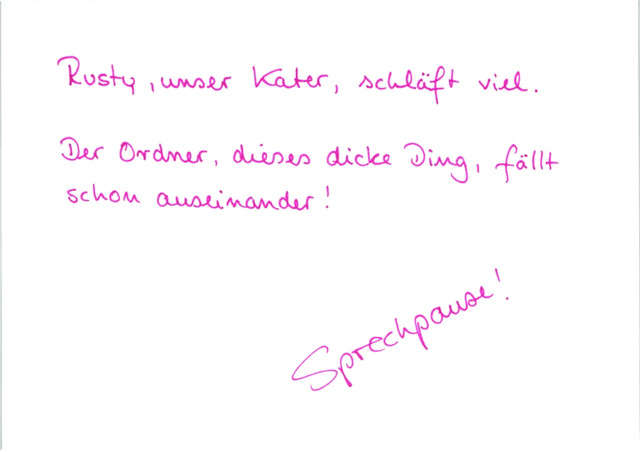 Rusty, unser Kater, schläft viel.
Der Ordner, dieses dicke Ding, fällt
schon auseinander!
Sprechpause!